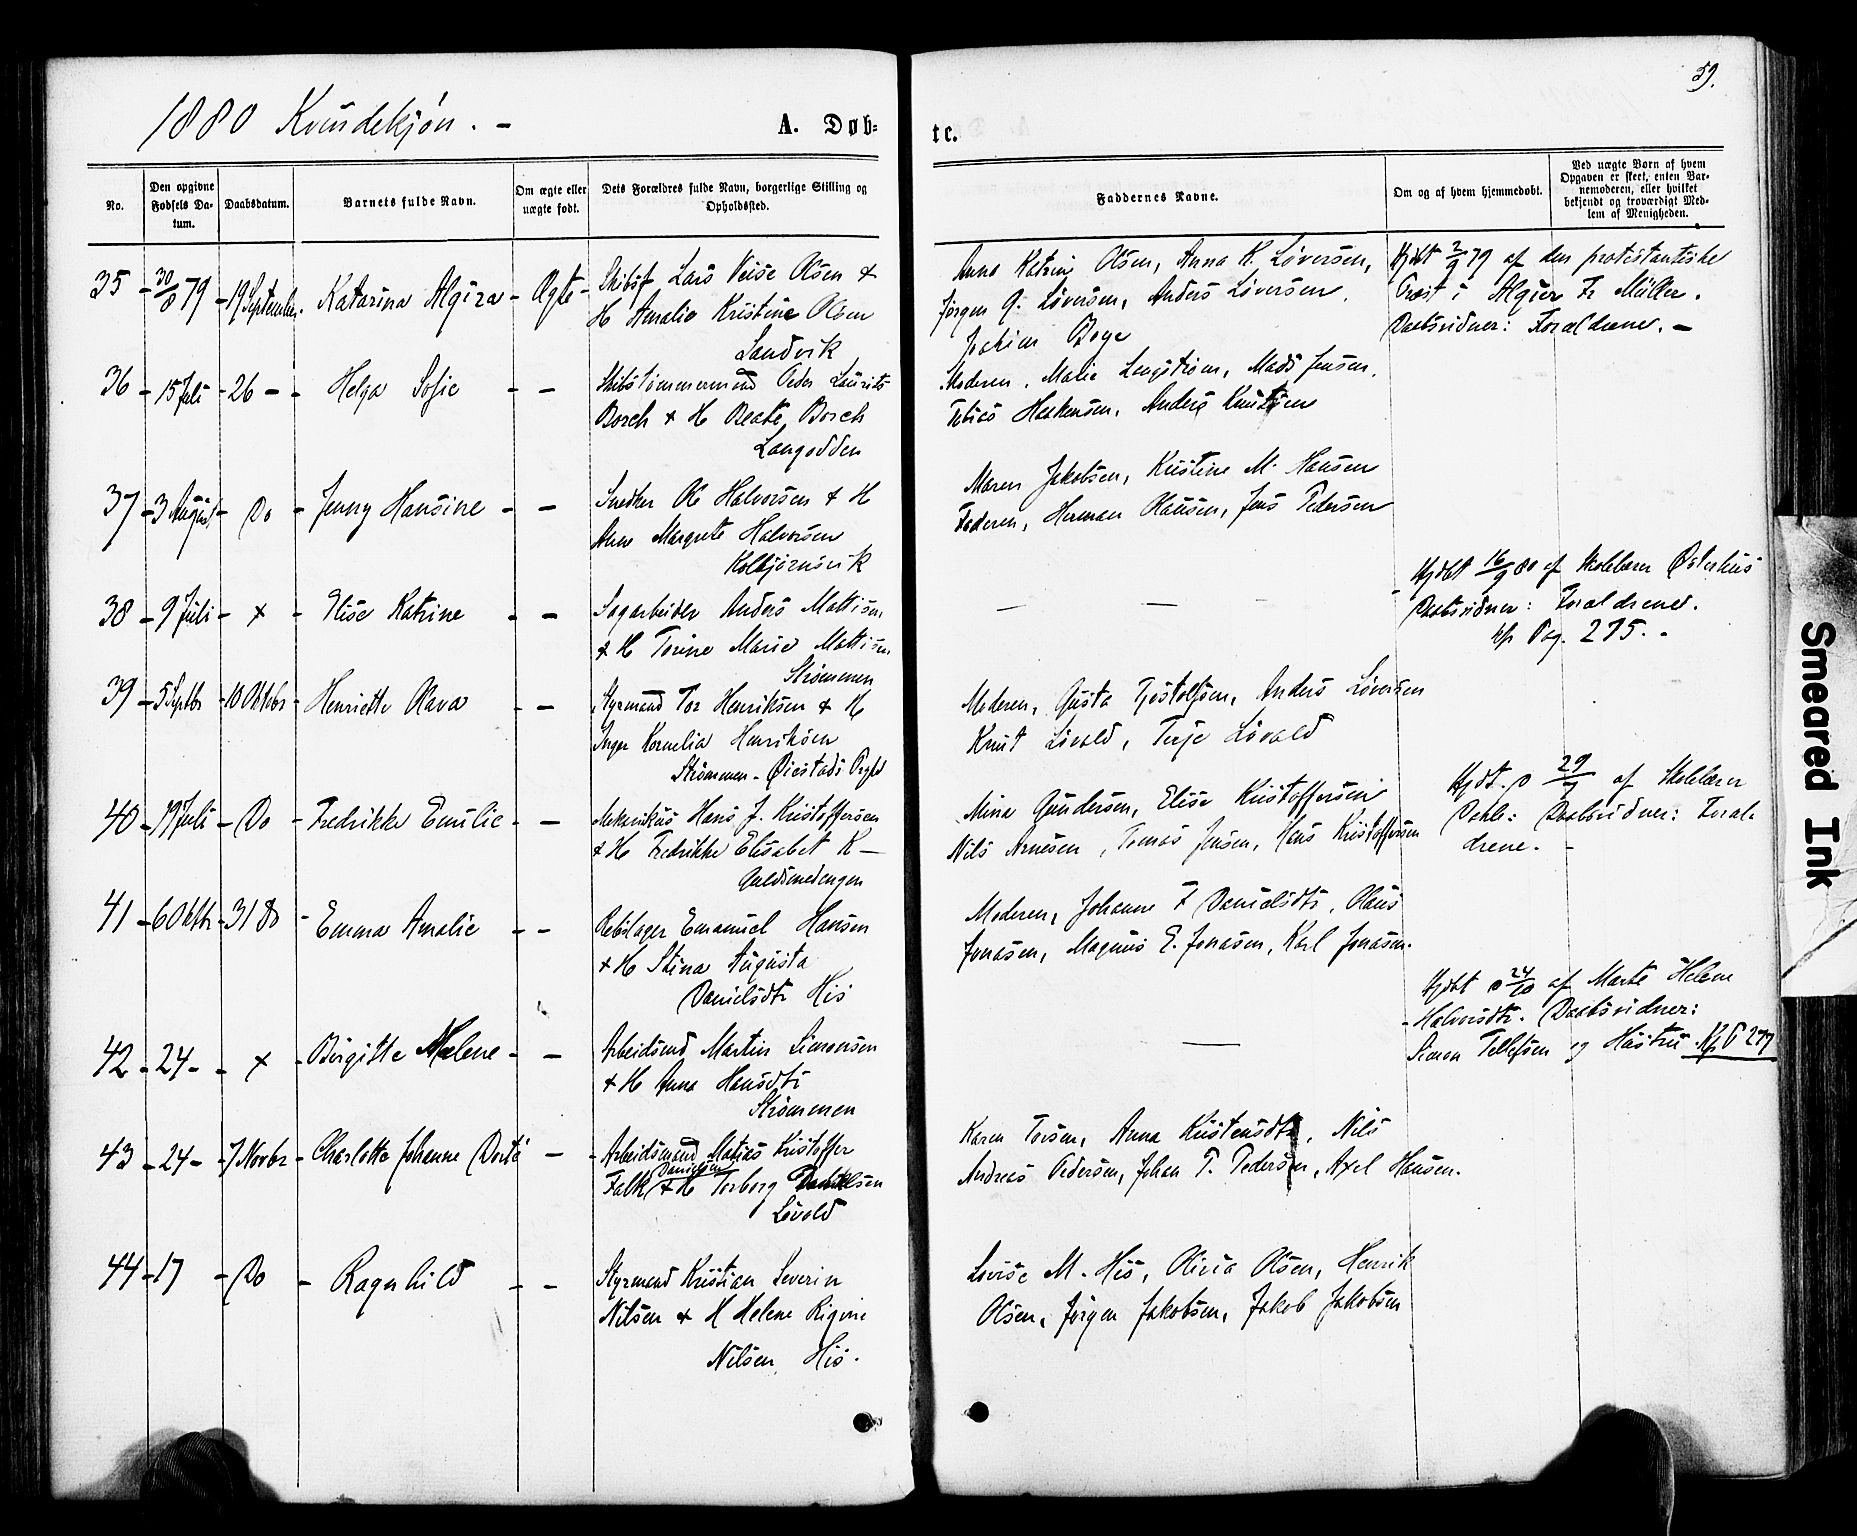 59.
1880 Kvindekjøn. -
A. Døb-
tc.
No.
Den opgivne Fødsels Da-tum.
Daabsdatum.
Barnets fulde Navn.
Om ægte eller uægte født.
Dets Forældres fulde Navn, borgerlige Stilling og Opholdssted.
Faddernes Navne.
Om og af hvem hjemmedøbt.
Ved uægte Børn af hvem Opgaven er skeet, enten Bar-nemoderen, eller hvilket bekjendt og troværdigt Med-lem af Menigheden.
35 - 30/8 79 - 19 September - Katarina Algira - Ægte - Skibsf Lars Olsen &
H Amalie Kristine Olsen
Sandvik
Anna Katrine Olsen, Anna K. Løversen,
Jørgen G. Løversen, Anders Løversen.
Joakim Boye
Hjdbt 2/9 79 af den protestantiske
Præst i Algier Fr Müller.
Daabsvidner: Forældrene. -
36 - 15 Juli - 26 - - Helga Sofie - - Skibstømmermand Peder Laurits
Borch & H Beate Borch
Langodden
Moderen, Malie Mads Jensen.
Tobias Anders Knutsen
37 - 3 August - Do - Jenny Hansine - - Snedker Ole Halvorsen & H
Anne Margrete Halvorsen
Kolbjørnsvik
Maren Jakobsen, Kristine M. Hansen
Faderen, Herman Klausen, Jens Pedersen
38 - 9 Juli - x - Elise Katrine - - Sagarbeider Anders Mattisen
& H Torine Marie Mattisen
Strømmen
— — —
Hjdbt 16/9 80 af Skolelærer Østerhus
Daabsvidner: Forældrene.
kfr Pag. 275. -
39 - 5 Septbr - 10 Oktobr - Henriette Olava - - Styrmand Tor Henriksen & H
Inger Kornelia Henriksen
Strømmen - Øiestads Prgld
Moderen, Gusta Tjøstolfsen, Anders Løversen
Knut Løvold, Terje Løvold
40 - 19 Juli - Do - Fredrikke Emilie - - Mekanikus Hans J. Kristoffersen
& H Fredrikke Elisabet K -
Guldsmedengen
Mina Gundersen, Elise Kristoffersen
Nils Arnesen, Tomas Jensen, Hans Kristoffersen
Hjdt. af Skolelærer
Dahle: Daabsvidner: Foræl-
drene. -
41 - 6 Oktbr - 31 Do - Emma Amalie - - Rebslager Emanuel Hansen
& H Stina Augusta
Danielsdtr His
Moderen, Johanne F Danielsdtr, Olaus
Jonasen, Magnus E. Jonasen, Karl Jonasen.
42 - 24 - - x - Birgitte Malene - - Arbeidsmd Martin Simonsen
& H Anna Hansdtr
Strømmen
—
Hjdbt 24/10 af Marte Helene
Halvorsdtr. Daabsvidner:
Simon Tellefsen og Hustru. Kfr P 277
43 - 24 - - 7 Novbr - Charlotte Johanne Dorte - - Arbeidsmand Matias Kristoffer
Danielsen
Falk & H Torborg Danielsen
Løvold
Karen Torsen, Anna Kristensdtr, Nils
Andreas Pedersen, Johan P. Pedersen, Axel Hansen.
44 - 17 - Do - Ragnhild - - Styrmand Kristian Severin
Nilsen & H Helene Nilsen His.
Lovise M. His, Olivia Olsen, Henrik
Olsen, Jørgen Jakobsen, Jakob Jakobsen
Smeared Ink